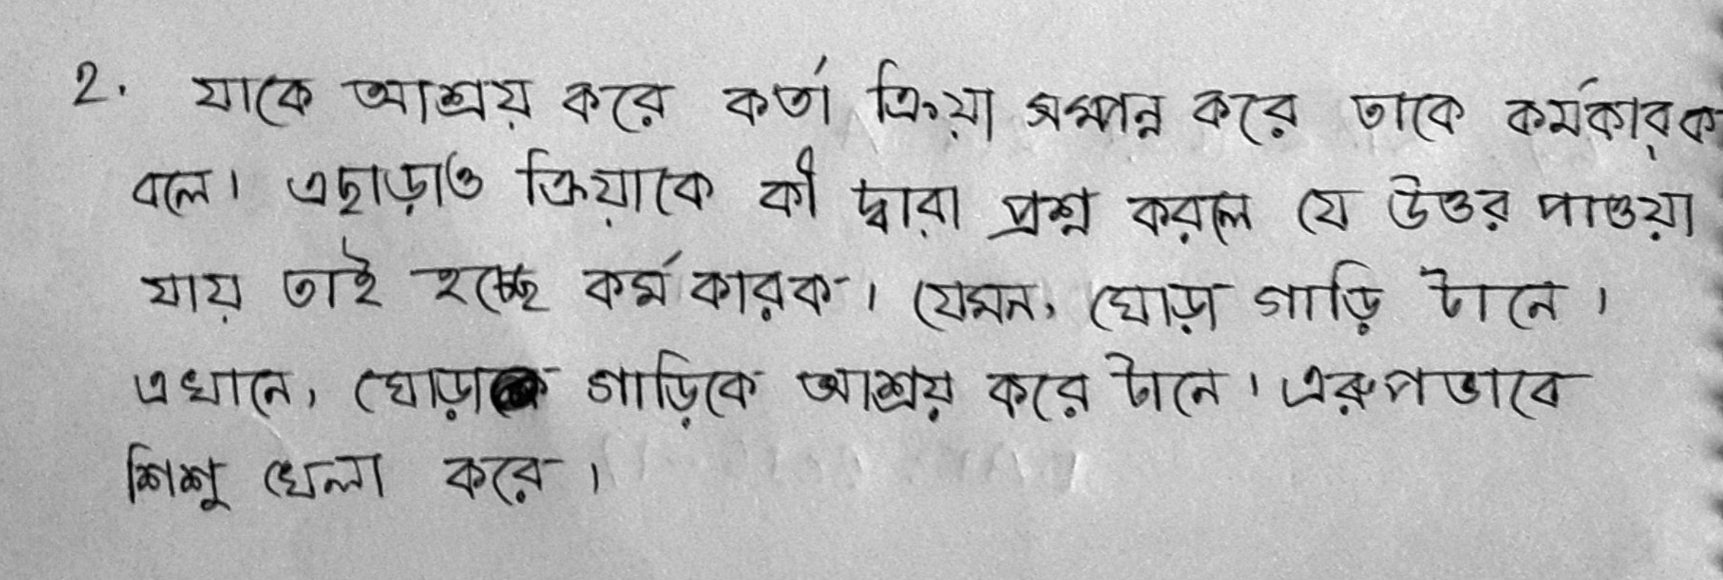 2. যাকে আশ্রয় করে কর্তা ক্রিয়া সম্পন্ন করে তাকে কর্মকারক
বলে। এছাড়াও ক্রিয়াকে কী দ্বারা প্রশ্ন করলে যে উত্তর পাওয়া
যায় তাই হচ্ছে কর্ম কারক। যেমন, ঘোড়া গাড়ি টানে।
এখানে, ঘোড়া গাড়িকে আশ্রয় করে টানে। এরুপভাবে
শিশু খেলা করে।